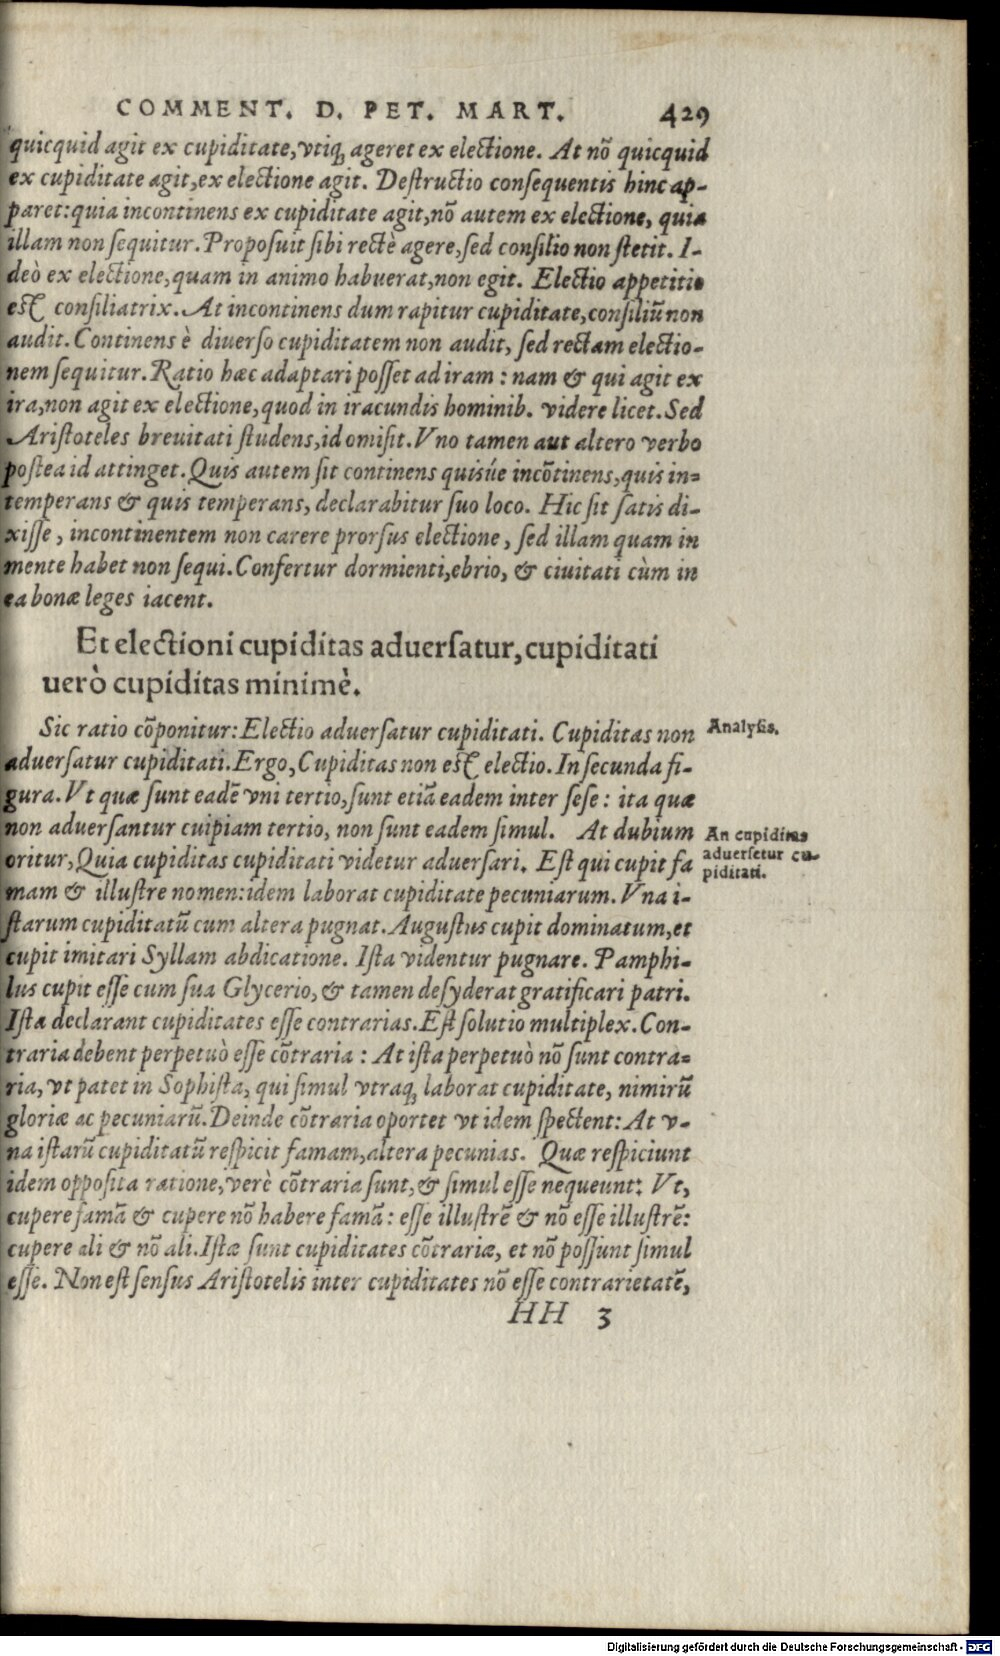 COMMENT. D. PET. MART. 429
quicquid agit ex cupiditate, vtiq; ageret ex electione. At nō quicquid
ex cupiditate agit, ex electione agit. Destructio consequentis hinc ap-
paret: quia incontinens ex cupiditate agit, nō autem ex electione, quia
illam non sequitur. Proposuit sibi rectè agere, sed consilio non stetit. I-
deò ex electione, quam in animo habuerat, non egit. Electio appetitio
est consiliatrix. At incontinens dum rapitur cupiditate, consiliū non
audit. Continens è diuerso cupiditatem non audit, sed rectam electio-
nem sequitur. Ratio hæc adaptari posset ad iram: nam & qui agit ex
ira, non agit ex electione, quod in iracundis hominib. videre licet. Sed
Aristoteles breuitati studens, id omisit. Vno tamen aut altero verbo
postea id attinget. Quis autem sit continens quisúe incōtinens, quis in-
temperans & quis temperans, declarabitur suo loco. Hic sit satis di-
xisse, incontinentem non carere prorsus electione, sed illam quam in
mente habet non sequi. Confertur dormienti, ebrio, & ciuitati cùm in
ea bonæ leges iacent.
Et electioni cupiditas aduersatur, cupiditati
uerò cupiditas minimè.
Sic ratio cōponitur: Electio aduersatur cupiditati. Cupiditas non
Analysis.
aduersatur cupiditati. Ergo, Cupiditas non est electio. In secunda fi-
gura. Vt quæ sunt eadē vni tertio, sunt etiā eadem inter sese: ita quæ
non aduersantur cuipiam tertio, non sunt eadem simul. At dubium
oritur, Quia cupiditas cupiditati videtur aduersari. Est qui cupit fa
An cupiditas
aduersetur cu-
piditati.
mam & illustre nomen: idem laborat cupiditate pecuniarum. Vna i-
starum cupiditatū cum altera pugnat. Augustus cupit dominatum, et
cupit imitari Syllam abdicatione. Ista videntur pugnare. Pamphi-
lus cupit esse cum sua Glycerio, & tamen desyderat gratificari patri.
Ista declarant cupiditates esse contrarias. Est solutio multiplex. Con-
traria debent perpetuò esse cōtraria: At ista perpetuò nō sunt contra-
ria, vt patet in Sophista, qui simul vtraq; laborat cupiditate, nimirū
gloriæ ac pecuniarū. Deinde cōtraria oportet vt idem spectent: At v-
na istarū cupiditatū respicit famam, altera pecunias. Quæ respiciunt
idem opposita ratione, verè cōtraria sunt, & simul esse nequeunt: Vt,
cupere famā & cupere nō habere famā: esse illustrē & nō esse illustrē:
cupere ali & nō ali. Istæ sunt cupiditates cōtrariæ, et nō possunt simul
esse. Non est sensus Aristotelis inter cupiditates nō esse contrarietatē,
HH 3
Digitalisierung gefördert durch die Deutsche Forschungsgemeinschaft - DFG